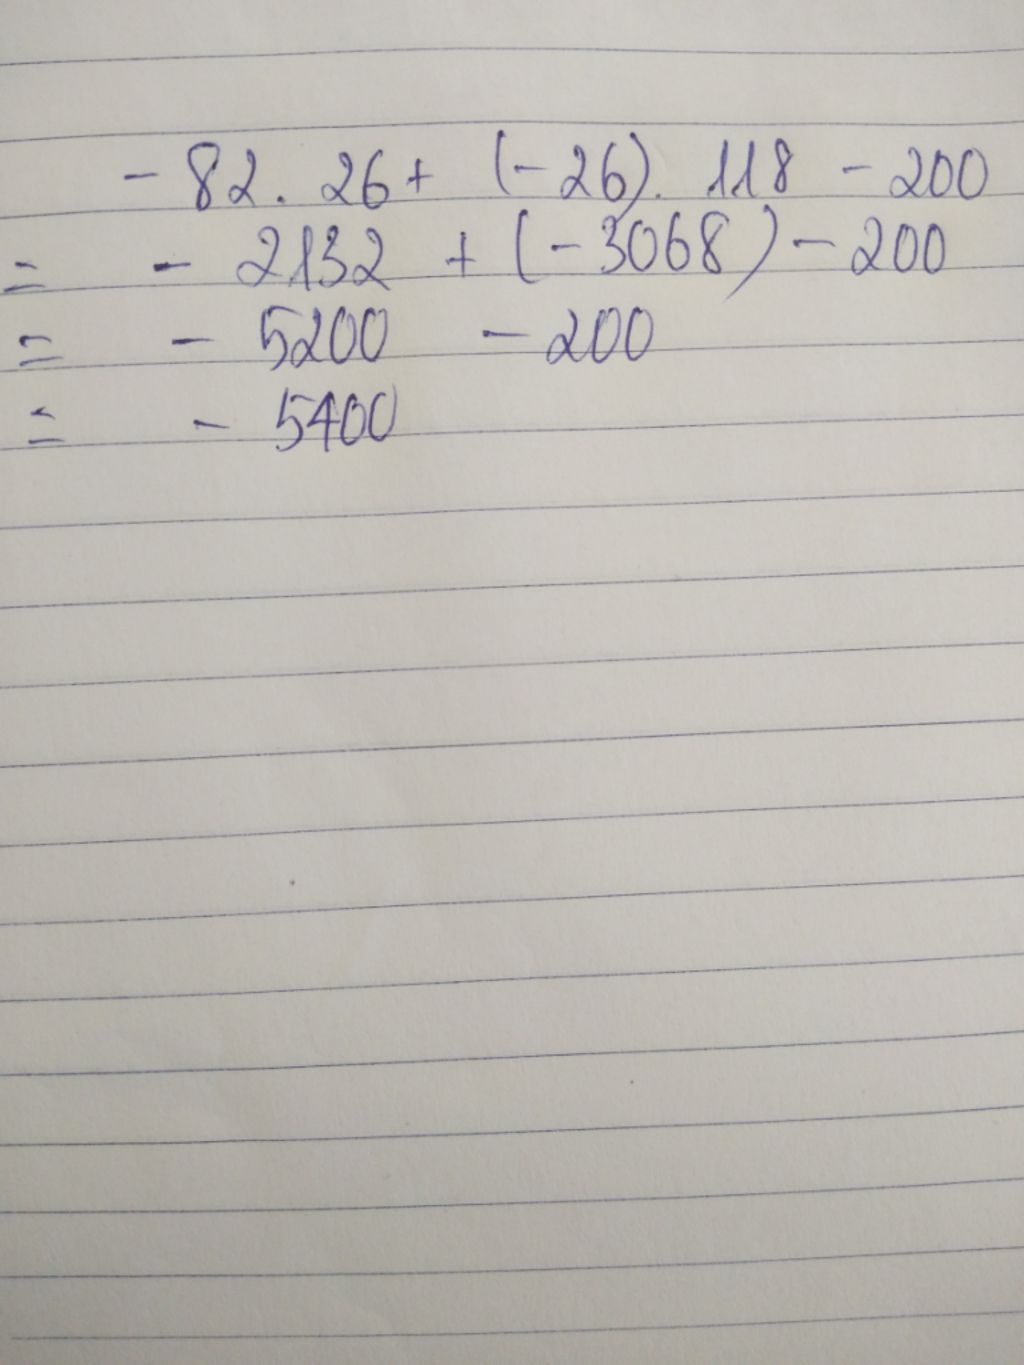 - 82. 26 + (- 26). 118 - 200
= - 2132 + (- 3068) - 200
= - 5200 - 200
= - 5400